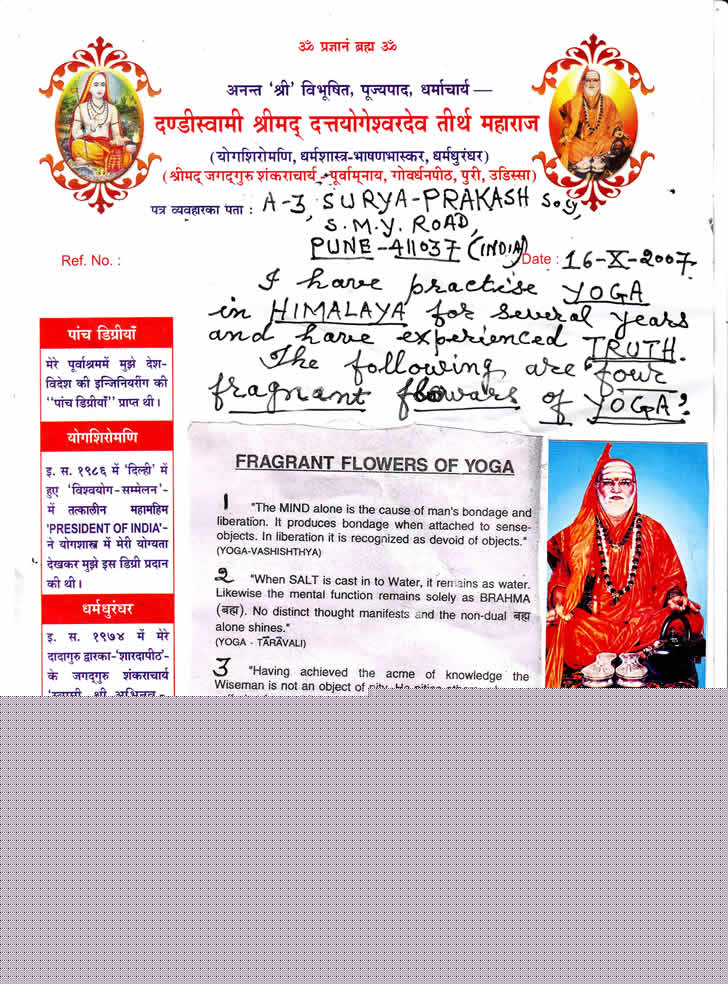 ॐ प्रज्ञानं ब्रह्म ॐ
अनन्त ‘श्री’ विभूषित, पूज्यपाद, धर्माचार्य —
दण्डीस्वामी श्रीमद् दत्तयोगेश्वरदेव तीर्थ महाराज
(योगशिरोमणि, धर्मशास्त्र-भाषणभास्कर, धर्मधुरंधर)
(श्रीमद् जगद्गुरु शंकराचार्य, -पूर्वाम्नाय, गोवर्धनपीठ, पुरी, उडिस्सा)
पत्र व्यवहारका पता : A-3 SURYA-PRAKASH Socy,
S.M.Y. ROAD,
PUNE-411037 (INDIA)
Ref. No. : Date : 16-X-2007.
I have practise YOGA
in HIMALAYA for several years
and have experienced TRUTH.
The following are "four
fragnant flowars of YOGA"
पांच डिग्रीयाँ
मेरे पूर्वाश्रममें मुझे देश-
विदेश की इन्जिनियरींग की
“पांच डिग्रीयाँ” प्राप्त थी।
योगशिरोमणि
इ. स. १९८६ में ‘दिल्ही’ में
हुए ‘विश्वयोग-सम्मेलन’-
में तत्कालीन महामहिम
‘PRESIDENT OF INDIA’-
ने योगशास्त्र में मेरी योग्यता
देखकर मुझे इस डिग्री प्रदान
की थी।
धर्मधुरंधर
इ. स. १९७४ में मेरे
दादागुरु द्वारका-‘शारदापीठ’-
के जगद्गुरु शंकराचार्य
‘स्वामी श्री अभिनव-
FRAGRANT FLOWERS OF YOGA
1 "The MIND alone is the cause of man's bondage and
liberation. It produces bondage when attached to sense-
objects. In liberation it is recognized as devoid of objects."
(YOGA-VASHISHTHYA)
2 "When SALT is cast in to Water, it remains as water.
Likewise the mental function remains solely as BRAHMA
(ब्रह्म). No distinct thought manifests and the non-dual ब्रह्म
alone shines."
(YOGA - TĀRĀVALI)
3 "Having achieved the acme of knowledge the
Wiseman is not an object of pity. He pities